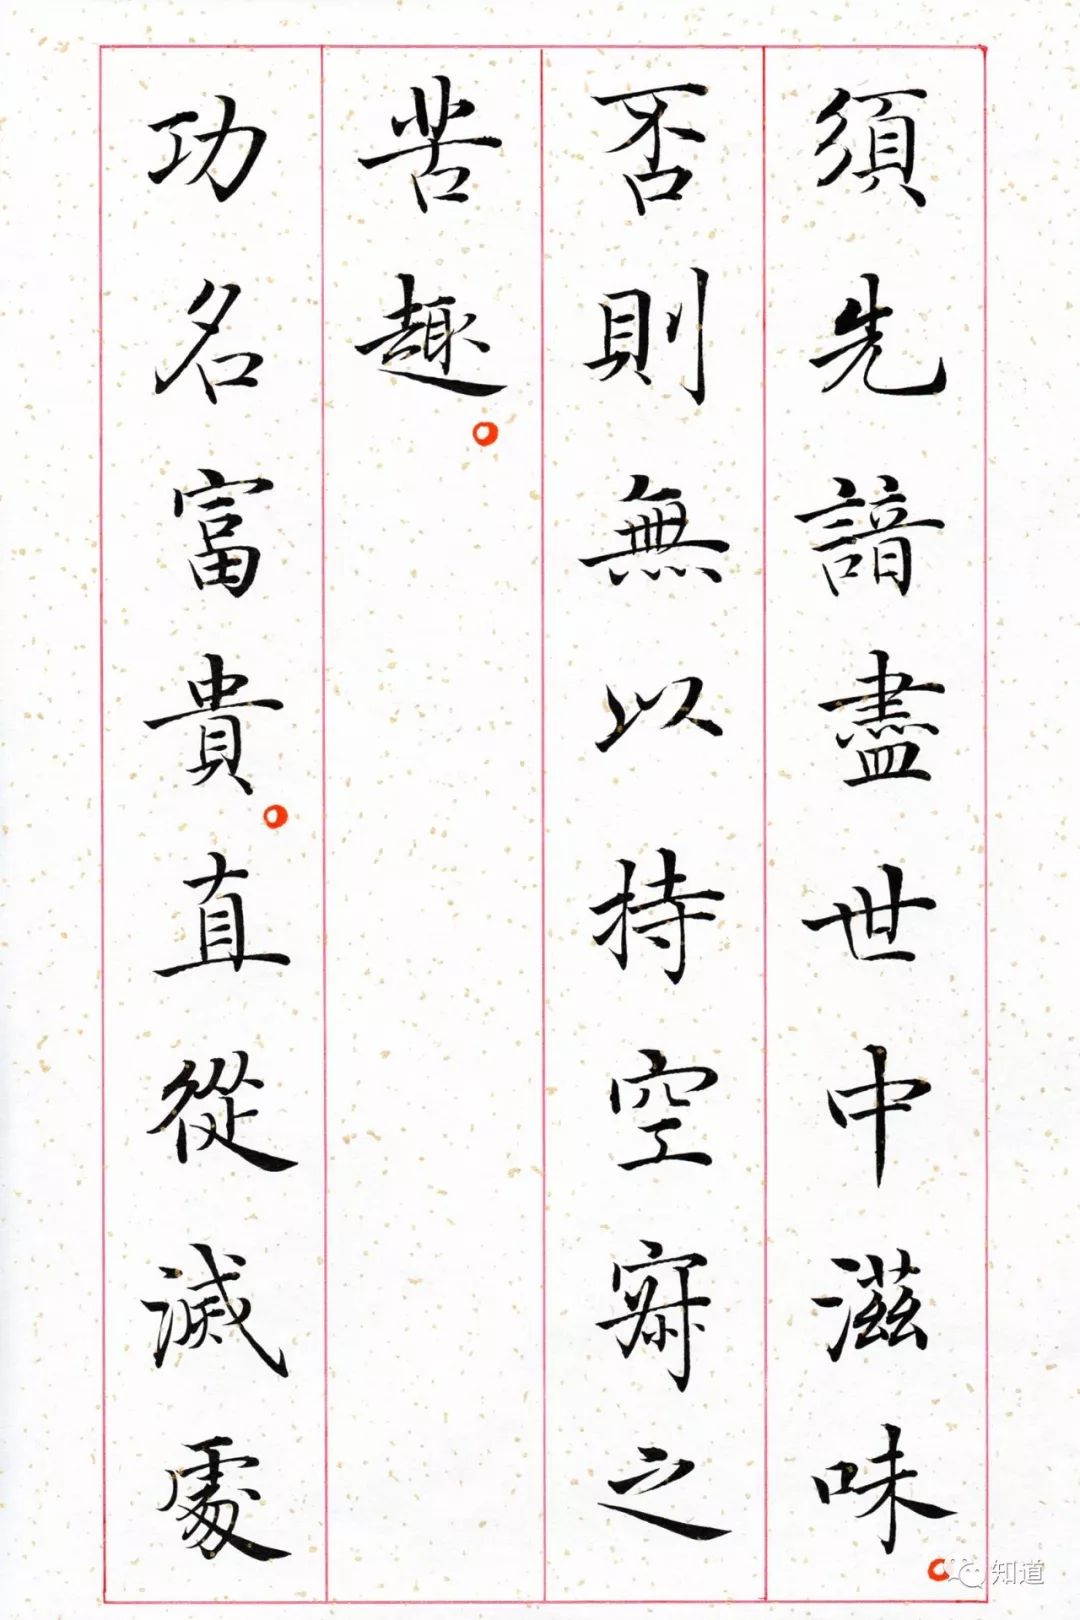 須先諳盡世中滋味。
否則無以持空寂之
苦趣。
功名富貴。直從滅處
知道